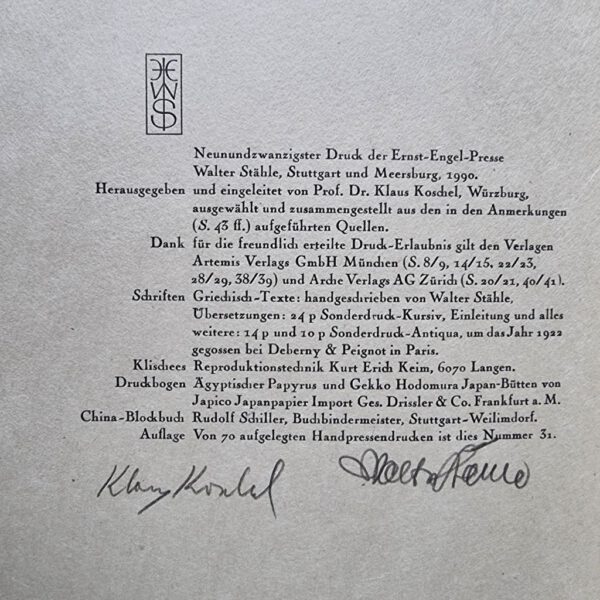 Neunundzwanzigster Druck der Ernst-Engel-Presse
Walter Stähle, Stuttgart und Meersburg, 1990.
Herausgegeben und eingeleitet von Prof. Dr. Klaus Koschel, Würzburg,
ausgewählt und zusammengestellt aus den in den Anmerkungen
(S. 43 ff.) aufgeführten Quellen.
Dank für die freundlich erteilte Druck-Erlaubnis gilt den Verlagen
Artemis Verlags GmbH München (S. 8/9, 14/15, 22/23,
28/29, 38/39) und Arche Verlags AG Zürich (S. 20/21, 40/41).
Schriften Griechisch-Texte: handgeschrieben von Walter Stähle,
Übersetzungen: 24 p Sonderdruck-Kursiv, Einleitung und alles
weitere: 14 p und 10 p Sonderdruck-Antiqua, um das Jahr 1922
gegossen bei Deberny & Peignot in Paris.
Klischees Reproduktionstechnik Kurt Erich Keim, 6070 Langen.
Druckbogen Ägyptischer Papyrus und Gekko Hodomura Japan-Bütten von
Japico Japanpapier Import Ges. Drissler & Co. Frankfurt a. M.
China-Blockbuch Rudolf Schiller, Buchbindermeister, Stuttgart-Weilimdorf.
Auflage Von 70 aufgelegten Handpressendrucken ist dies Nummer 31.
Klaus Koschel